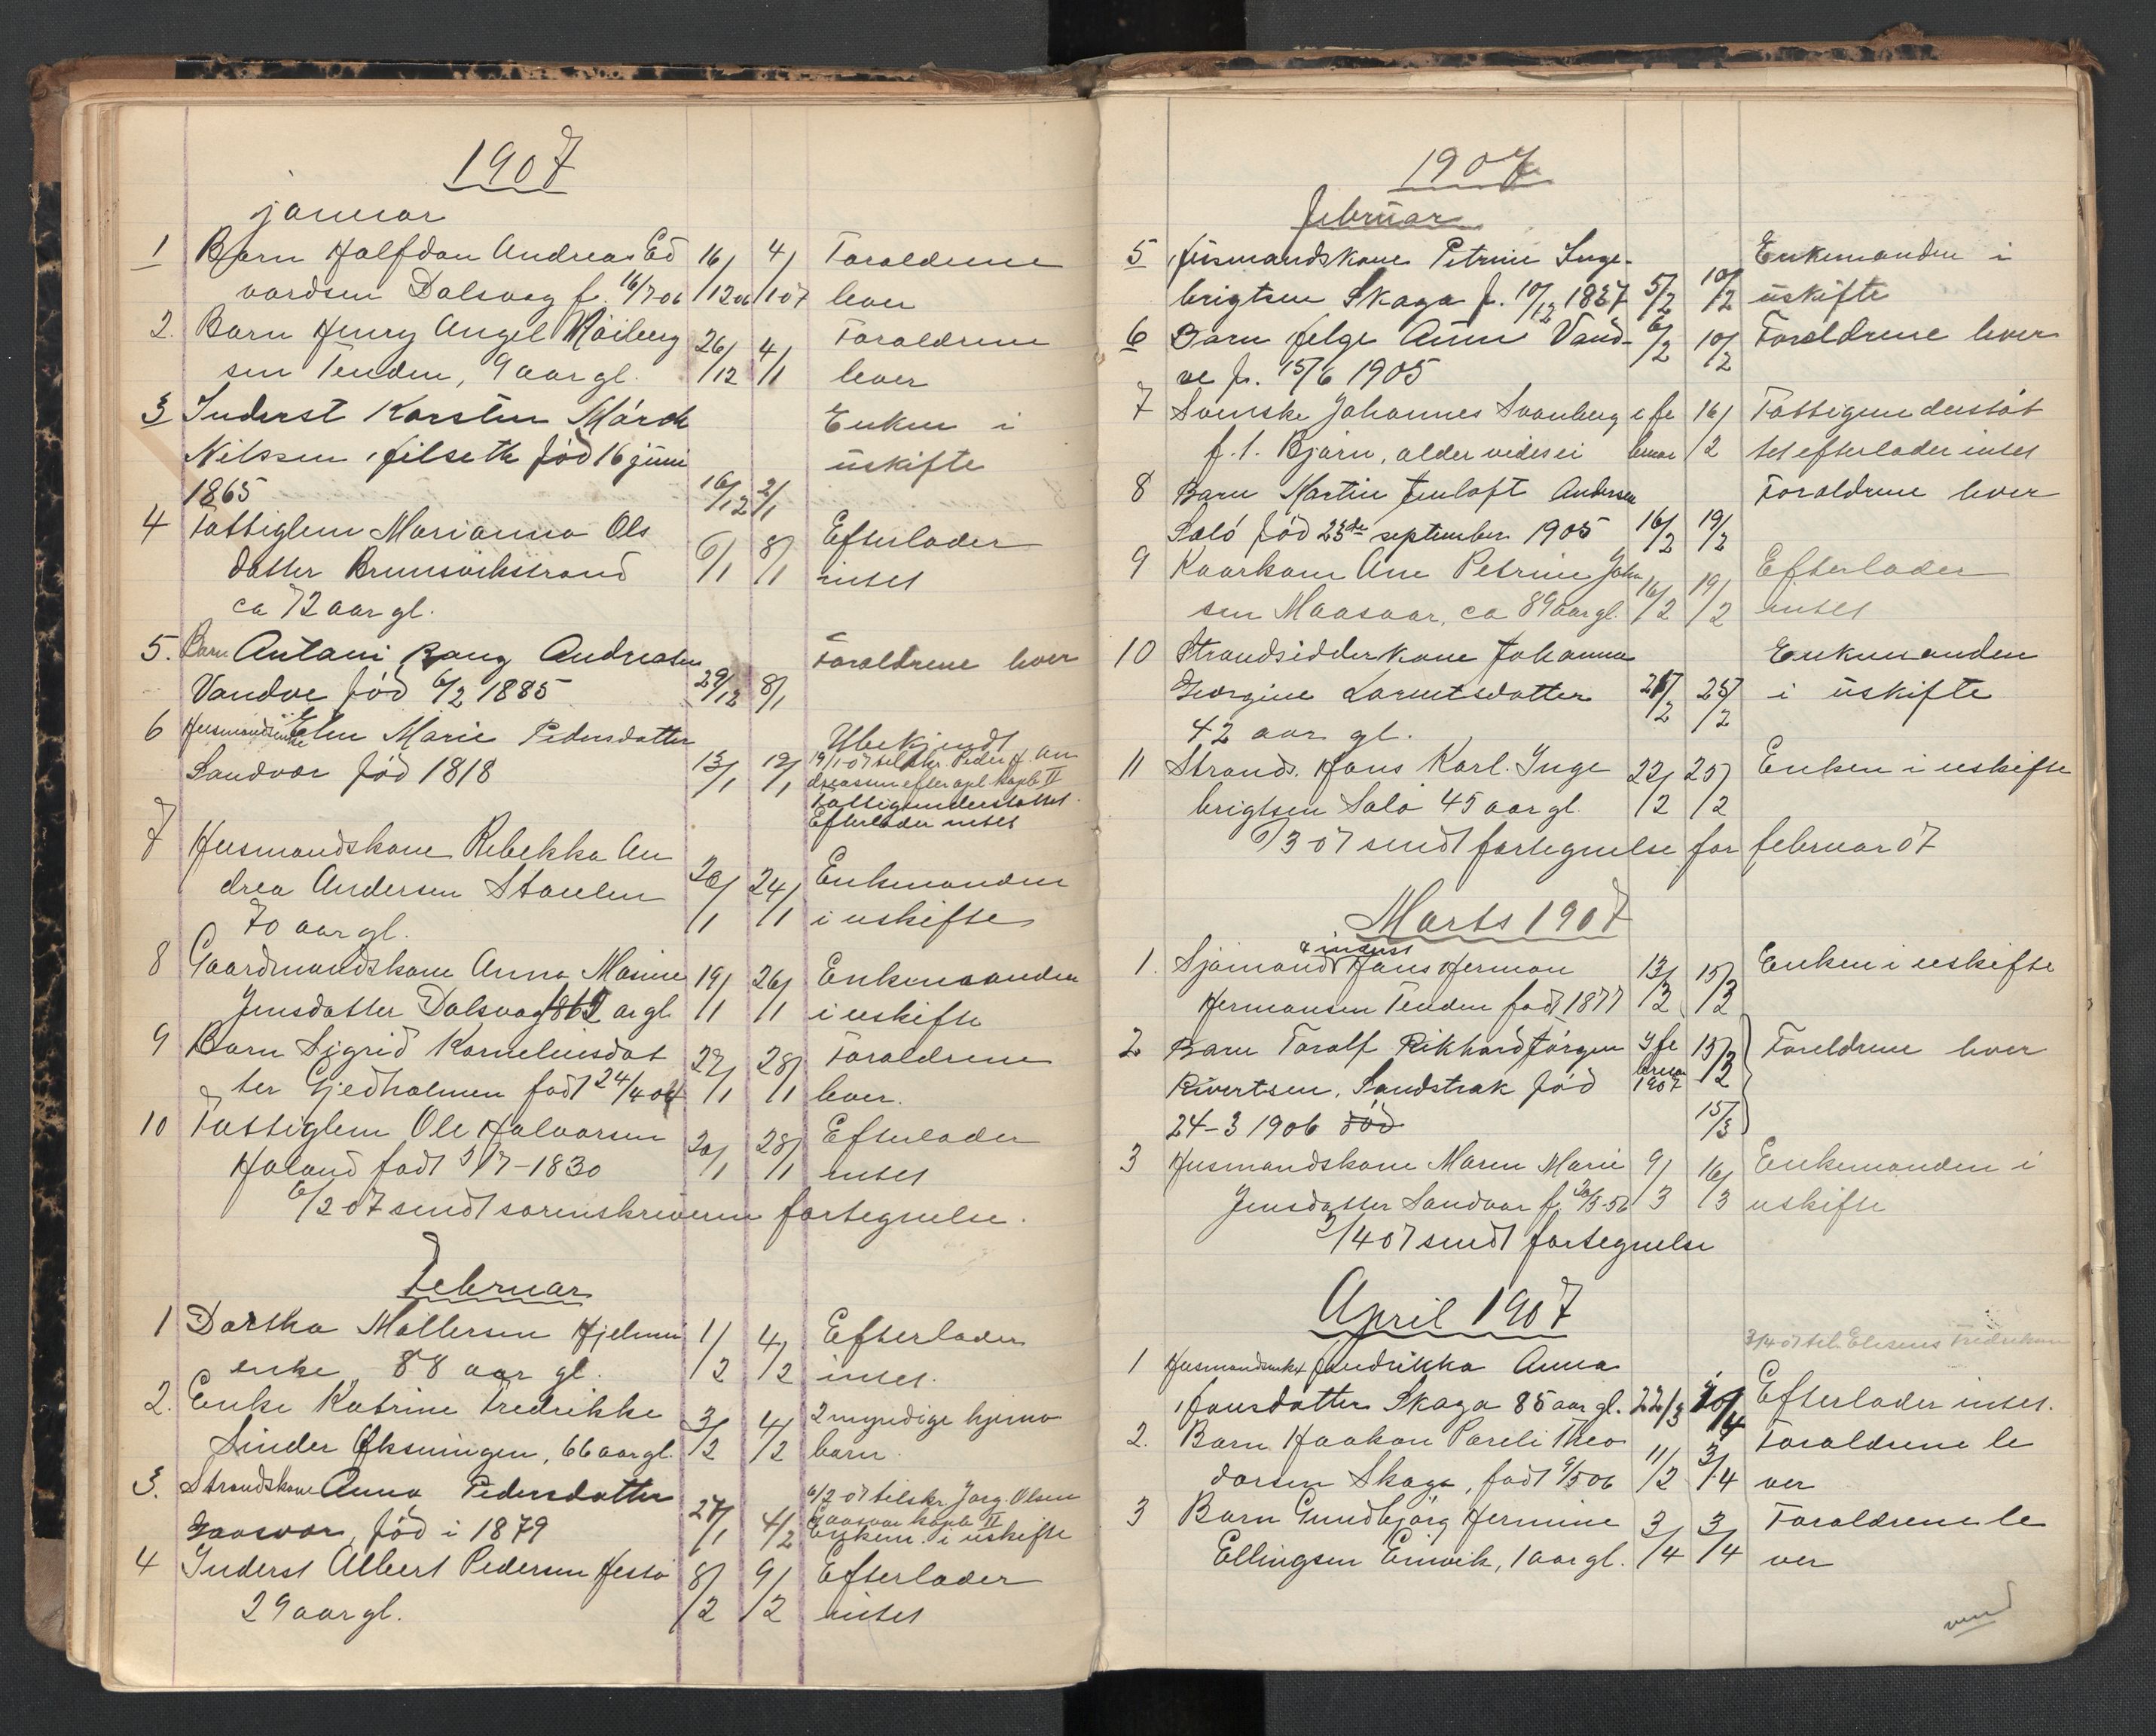 1907
januar
1 Barn Halfdan Andreas Ed 16/ 4/ Foraldrene
vardsen Dalsvag f. 16/7 06 /12 06 /1 07 lever
2. Barn Henry Angel 26/ 4/ Foraldrene
sen Tenden, 9 aar gl. /12 /1 lever
3 Inderst Karsten Márck Enken i
Nilssen Hilseth fød 16 juni uskifte
1865 16/12 2/1
4 Fattiglem Marianna Ols 6/ 8/ Efterlader
datter Brunsvikstrand /1 /1 intet
ca 72 aar gl.
5. Barn Antani Bang Andreasen Foraldrene lever
Vandve fød 6/2 1885 29/12 8/1
6 Husmandsenke Elen Marie Pedersdatter Ubekjendt
Sandvær fød 1818 13/1 19/1 19/1 07 tilskr. Peder H. An
dreasen efter opl. kapb II
Fattigunderstøttet.
Efterlader intet
7 Husmandskone Rebekka An
drea Andersen Stoulen 20/ 24/ Enkemanden
70 aar gl. /1 /1 i uskifte
8 Gaardmandskone Anna Masine 19/ 26/ Enkemanden
Jensdatter Dalsvag 1862 ar gl /1 /1 i uskifte
9 Barn Sigrid Korneliusdat 22/ 28/ Foraldrene
ter Gjedholmen født 24/4 04 /1 /1 lever.
10 Fattiglem Ole Halvorsen 20/ 28/ Efterlader
Haland født 5/7-1830 /1 /1 intet
6/2 07 sendt sorenskriveren fortegnelse.
Februar
1 Dortha Mollersen Hjelmen 1/ 4/ Efterlader
enke, 88 aar gl. /2 /2 intet.
2. Enke Katrine Fredrikke 3/ 4/ 2 myndige hjema
Sinder Øksningen, 66 aar gl. /2 /2 barn.
3. Strandskone Anna Pedersdatter 6/2 07 tilskr Jørg. Olsen
Gaasvær, fød i 1879 27/1 4/2 Gaasvær kapb II
Enkem. i uskifte
4 Inderst Albert Pedersen Hestø 8/ 9/ Efterlader
29 aar gl. /2 /2 intet
1907
februar
5 Husmandskone Petrine Inge- Enkemanden i
brigtsen Skaga f. 10/12 1837 5/2 10/2 uskifte
6 Barn Helge Aune Vand- 6/2 10/2 Foreldrene lever
ve f. 15/6 1905
7 Svenske Johannes Svanberg i fe 16/ Fattigunderstøt
f. t. Bjørn, alder vides ei bruar /2 tet efterlader intet
8 Barn Martin Jenloft Andersen Foraldrene lever
Salø fød 23de september 1905 16/2 19/2
9 Kaarkone Ane Petrine Johan 16/ 19/ Efterlader
sen Maasvær, ca 89 aar gl. /2 /2 intet
10 Strandsidderkone Johanna Enkemanden
Georgine Lorentsdatter 21/2 25/2 i uskifte
42 aar gl.
11 Strands. Hans Karl. Inge 22/ 25/ Enken i uskifte
brigtsen Salø 45 aar gl. /2 /2
6/3 07 sendt fortegnelse for februar 07
Marts 1907
& inderst
1. Sjømand Hans Herman 13/ 15/ Enken i uskifte
Hermansen Tenden født 1877 /3 /3
2 Barn Toralf Rikhard Jørgen 9 fe 15/3 Foreldrene lever
Rivertsen, Sandstrak fød bruar 1907
24-3 1906 død 15/3
3 Husmandskone Maren Marie 9/ 16/ Enkemanden i
Jensdatter Sandvær f. 20/5-56 /3 /3 uskifte
2/4 07 sendt fortegnelse
April 1907
3/4 07 til Elesens Fredriksen
1 Husmandsenke Hendrikka Anna
Hansdatter Skaga 85 aar gl. 22/3 /4 Efterlader intet.
2. Barn Haakon Pareli Theo 11/ 3/ Foraldrene le
dorsen Skaga, født 9/5 06 /2 /4 ver
3 Barn Gundbjørg Hermine 3/ 3/ Foraldrene le
Ellingsen Einvik, 1 aar gl. /4 /4 ver
vend